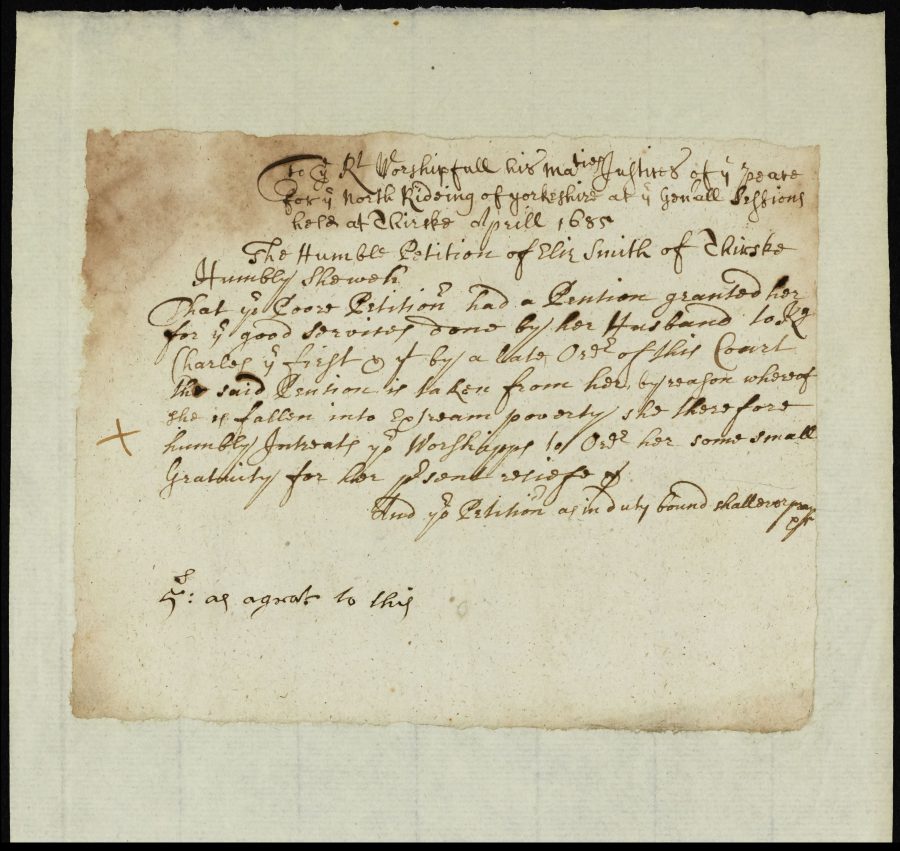 To ye Rt Worshipfull his Maties Justices of ye peace
for ye North Rideing of yorkeshire at ye Genall Sessions
held at Thirske Aprill 1685
The Humble Petition of Eliz Smith of Thirske
Humbly Sheweth
That yor Poore Petitionr had a Pention granted her
for ye good services done by her Husband to Kg
Charles ye first & yt by a late Ordr of this Court
the said Pention is taken from her, by reason whereof
she is fallen into Extream poverty, she therefore
humbly Intreats yor Worshipps to Ordr her some small
Gratuity for her psent reliefe &
And yor Petitionr as in duty bound shall ever pray
&c
5s: as agreat to this